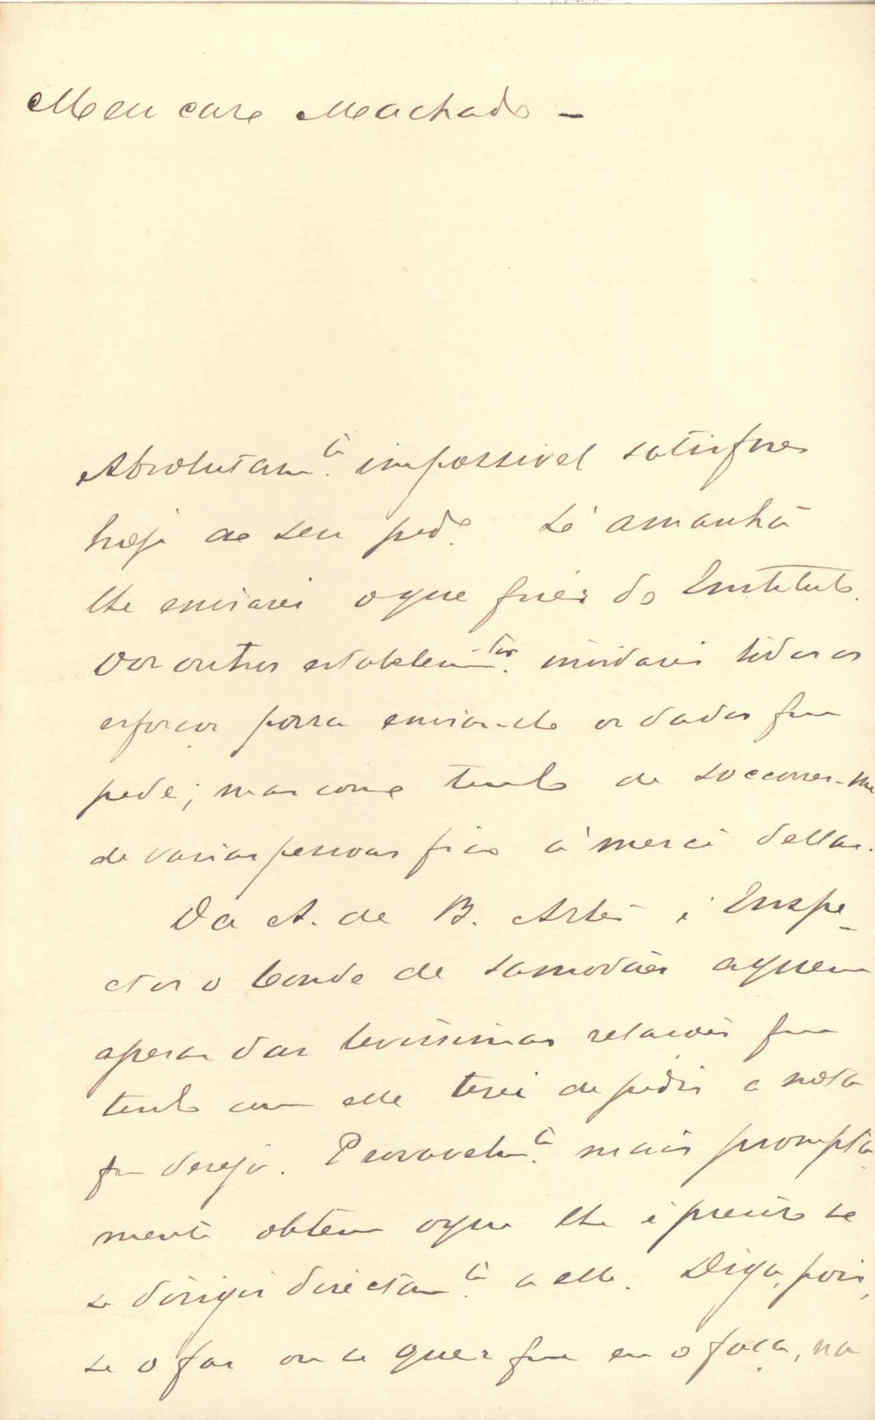 Meu caro Machado –
Absolutamte. impossivel satisfazer
hoje ao seu pedo. Só amanhã
lhe enviarei o que quér do Instituto.
Dos outros estabelecimtos. envidarei todos os
esforços para enviar-lhe os dados que
pede; mas como tenho de soccorrer-me
de varias pessoas fico á mercê dellas.
Da A. de B. Artes é Inspe-
ctor o Conde de Samodães a quem
apesar das levissimas relações que
tenho com elle terei de pedir a nota
que deseja. Provavelmte. mais prompta-
mente obtem o que lhe é preciso se
se dirigir directamte. a elle. Diga, pois,
se o faz ou se quer que eu o faça, na